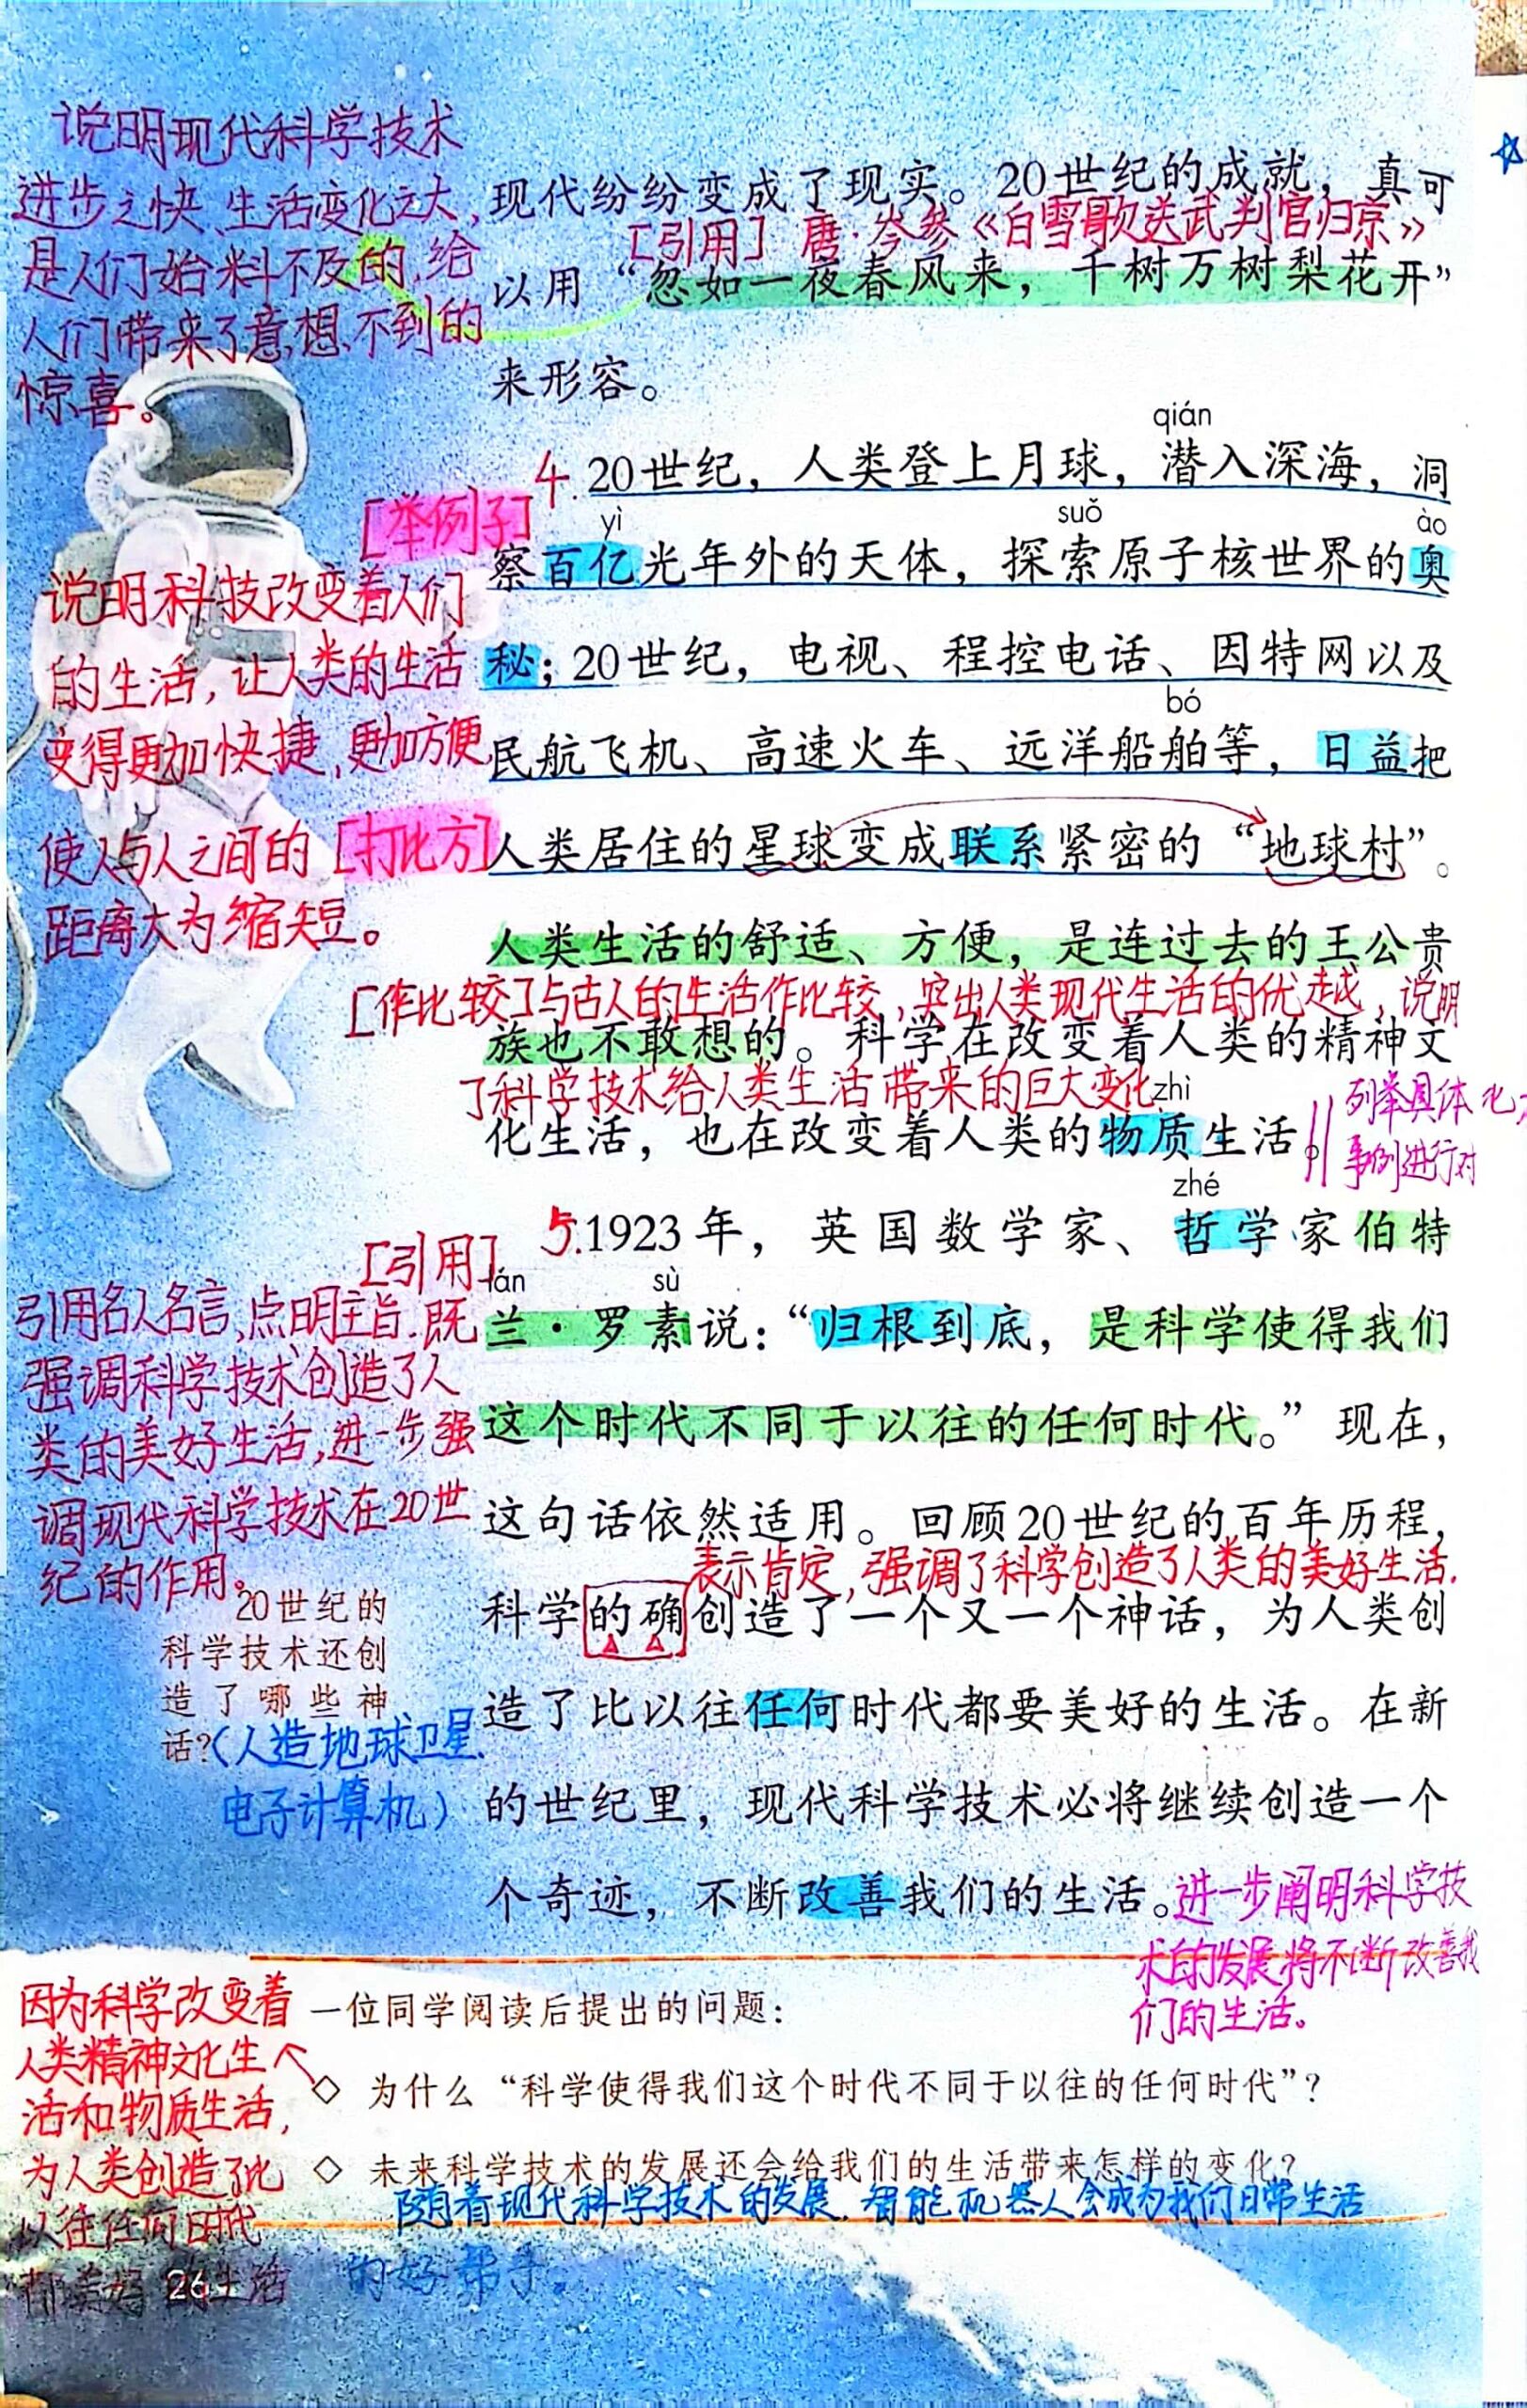 说明现代科学技术
进步之快、生活变化之大,
是人们始料不及的,给
人们带来了意想不到的
惊喜。
现代纷纷变成了现实。20世纪的成就，真可
[引用] 唐·岑参《白雪歌送武判官归京》
以用“忽如一夜春风来，千树万树梨花开”
来形容。
qián
4.20世纪，人类登上月球，潜入深海，洞
[举例子]
yì suǒ ào
察百亿光年外的天体，探索原子核世界的奥
说明科技改变着人们
的生活,让人类的生活
变得更加快捷,更加方便
秘；20世纪，电视、程控电话、因特网以及
bó
民航飞机、高速火车、远洋船舶等，日益把
使人与人之间的
距离大为缩短。
[打比方]
人类居住的星球变成联系紧密的“地球村”。
人类生活的舒适、方便，是连过去的王公贵
[作比较]与古人的生活作比较,突出人类现代生活的优越,说明
族也不敢想的。科学在改变着人类的精神文
了科学技术给人类生活带来的巨大变化
zhì
化生活，也在改变着人类的物质生活。
列举具体
事例进行对
zhé
5.1923年，英国数学家、哲学家伯特
[引用]
lán sù
兰·罗素说：“归根到底，是科学使得我们
引用名人名言,点明主旨.既
强调科学技术创造了人
类的美好生活,进一步强
调现代科学技术在20世
纪的作用。
这个时代不同于以往的任何时代。”现在，
这句话依然适用。回顾20世纪的百年历程，
表示肯定,强调了科学创造了人类的美好生活.
科学的确创造了一个又一个神话，为人类创
20世纪的
科学技术还创
造了哪些神
话?(人造地球卫星.
电子计算机)
造了比以往任何时代都要美好的生活。在新
的世纪里，现代科学技术必将继续创造一个
个奇迹，不断改善我们的生活。
进一步阐明科学技
术的发展将不断改善我
们的生活。
一位同学阅读后提出的问题：
◇ 为什么“科学使得我们这个时代不同于以往的任何时代”？
因为科学改变着
人类精神文化生
活和物质生活,
为人类创造了比
以往任何时代
都美好的生活
◇ 未来科学技术的发展还会给我们的生活带来怎样的变化？
随着现代科学技术的发展.智能机器人会成为我们日常生活
的好帮手。
26